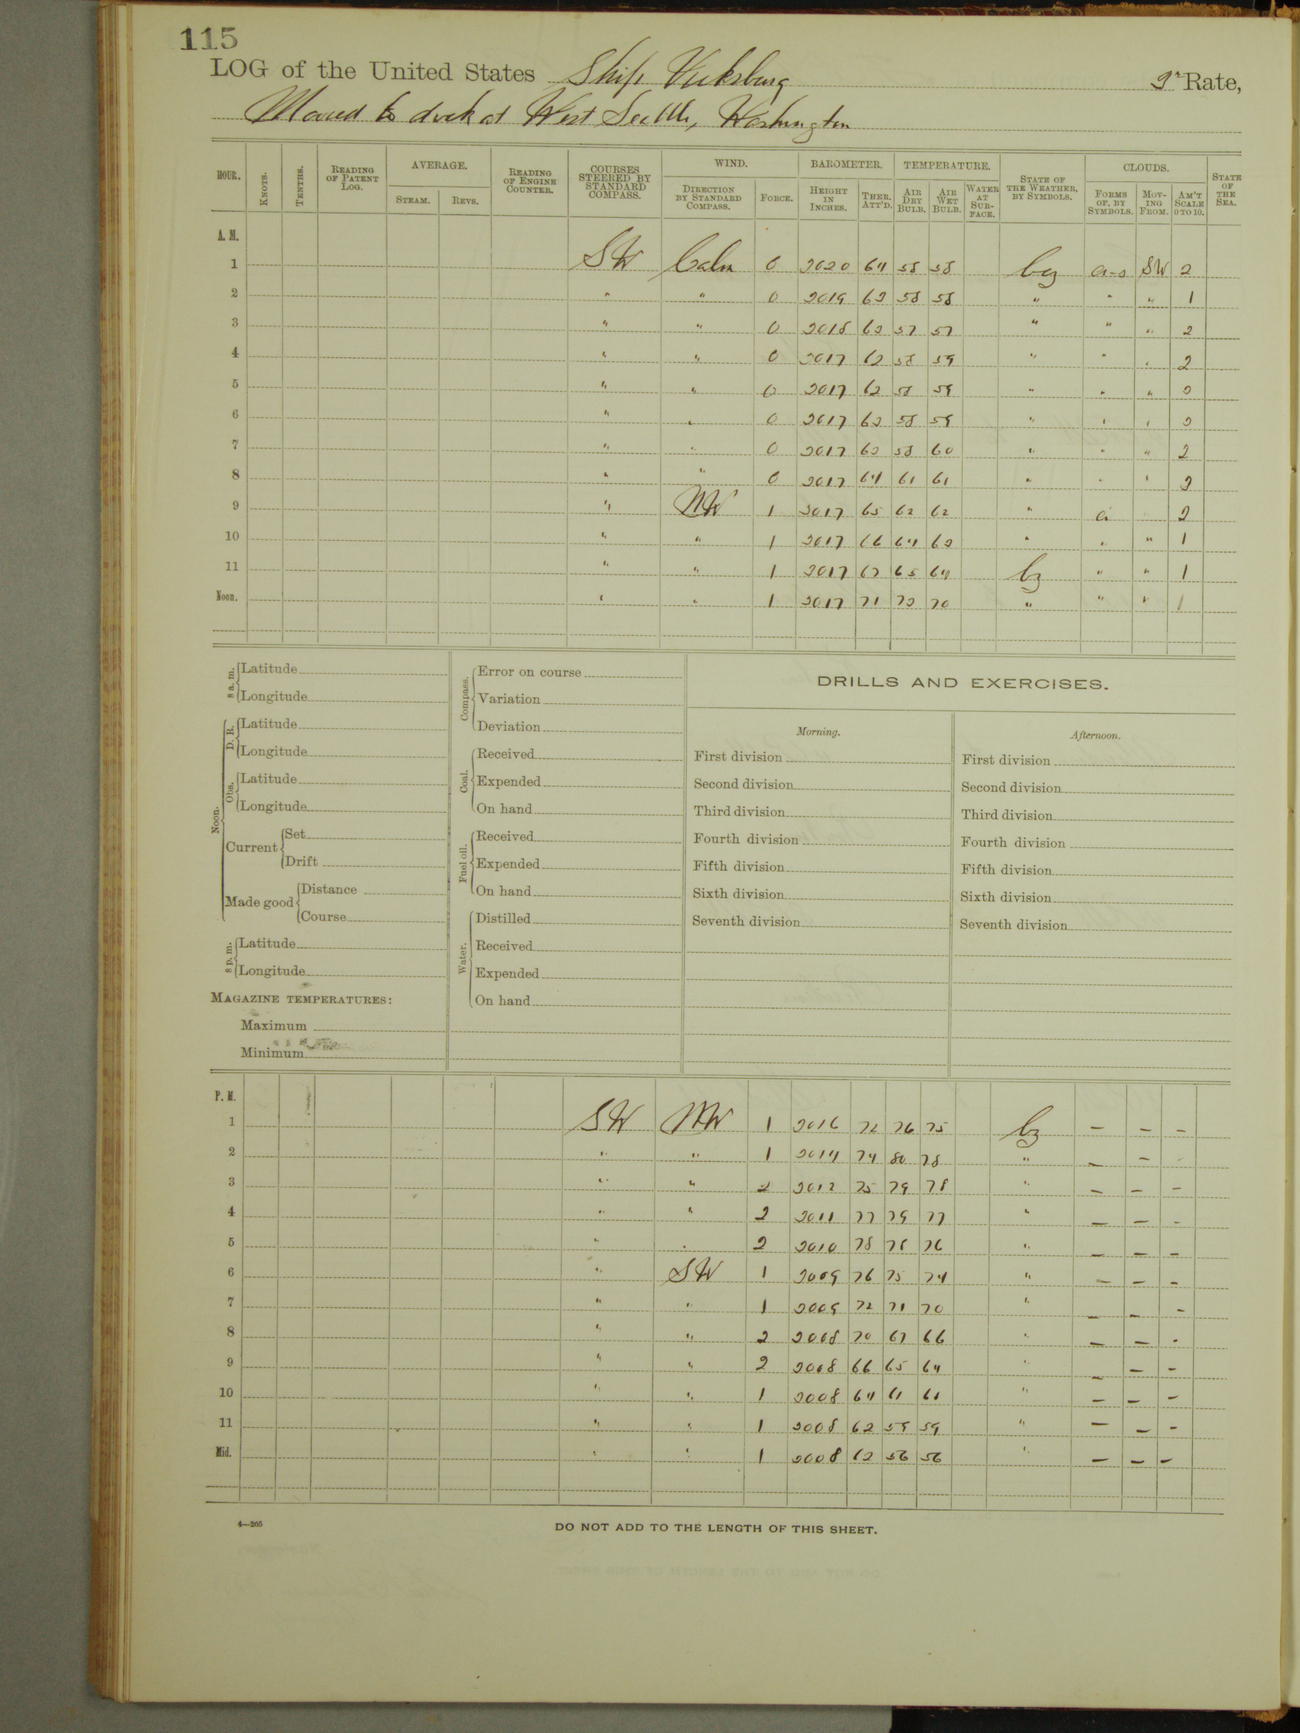 115
LOG of the United States Ship Vicksburg 3r Rate,
Moored to dock at West Seattle, Washington
HOUR. KNOTS. TENTHS. READING OF PATENT LOG. AVERAGE. STEAM. REVS. READING OF ENGINE COUNTER. COURSES STEERED BY STANDARD COMPASS. WIND. DIRECTION BY STANDARD COMPASS. FORCE. BAROMETER. HEIGHT IN INCHES. THER. ATT'D. TEMPERATURE. AIR DRY BULB. AIR WET BULB. WATER AT SURFACE. STATE OF THE WEATHER, BY SYMBOLS. CLOUDS. FORMS OF, BY SYMBOLS. MOVING FROM. AM'T SCALE 0 TO 10. STATE OF THE SEA.
A. M.
1 SW Calm 0 3020 64 58 58 bcz a-s SW 2
2 " " 0 3019 63 58 58 " " " 1
3 " " 0 3018 63 57 57 " " " 2
4 " " 0 3017 62 58 59 " " " 2
5 " " 0 3017 62 58 59 " " "
6 " " 0 3017 63 58 59 " " "
7 " " 0 3017 63 58 60 " " " 2
8 " " 0 3017 64 61 61 " " " 2
9 " NW 1 3017 65 62 62 " 2
10 " " 1 3017 66 64 63 " " " 1
11 " " 1 3017 67 65 64 bz " " 1
Noon. " " 1 3017 71 73 70 " " " 1
8 a.m. Latitude
Longitude
Noon. D. R. Latitude
Longitude
Obs. Latitude
Longitude
Current Set
Drift
Made good Distance
Course
8 p.m. Latitude
Longitude
MAGAZINE TEMPERATURES:
Maximum
Minimum
Compass. Error on course
Variation
Deviation
Coal. Received
Expended
On hand
Fuel oil. Received
Expended
On hand
Water. Distilled
Received
Expended
On hand
DRILLS AND EXERCISES.
Morning.
First division
Second division
Third division
Fourth division
Fifth division
Sixth division
Seventh division
Afternoon.
First division
Second division
Third division
Fourth division
Fifth division
Sixth division
Seventh division
P. M.
1 SW NW 1 3016 72 76 75 bz — — —
2 " " 1 3014 74 80 78 " — — -
3 " " 2 3012 75 79 78 " — — —
4 " " 2 3011 77 79 77 " — — -
5 " " 2 3010 78 78 76 " — — —
6 " SW 1 3009 76 75 74 " — — —
7 " " 1 3009 72 71 70 " — — —
8 " " 2 3008 70 67 66 " — — -
9 " " 2 3008 66 65 64 " — — —
10 " " 1 3008 64 61 61 " — — —
11 " " 1 3008 62 59 59 " — — -
Mid. " " 1 3008 62 56 56 " — — —
4—265
DO NOT ADD TO THE LENGTH OF THIS SHEET.